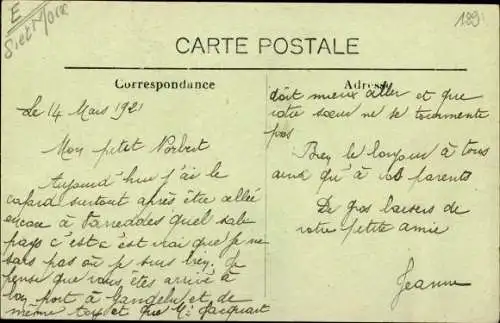 E
S et Marne
189
CARTE POSTALE
Correspondance
Adresse
Le 14 Mars 1921
Mon petit Norbert
Aujourd'hui j'ai le
cafard surtout après être allée
encore à Varreddes quel sale
pays c'est c'est vrai que je ne
sais pas où je suis bien. Je
pense que vous êtes arrivé à
bon port à Gandelu et de
même toy et que Mr Jacquart
doit mieux aller et que
votre sœur ne se tourmente
pas
Bien le bonjour à tous
ainsi qu'à vos parents
De gros baisers de
votre petite amie
Jeanne